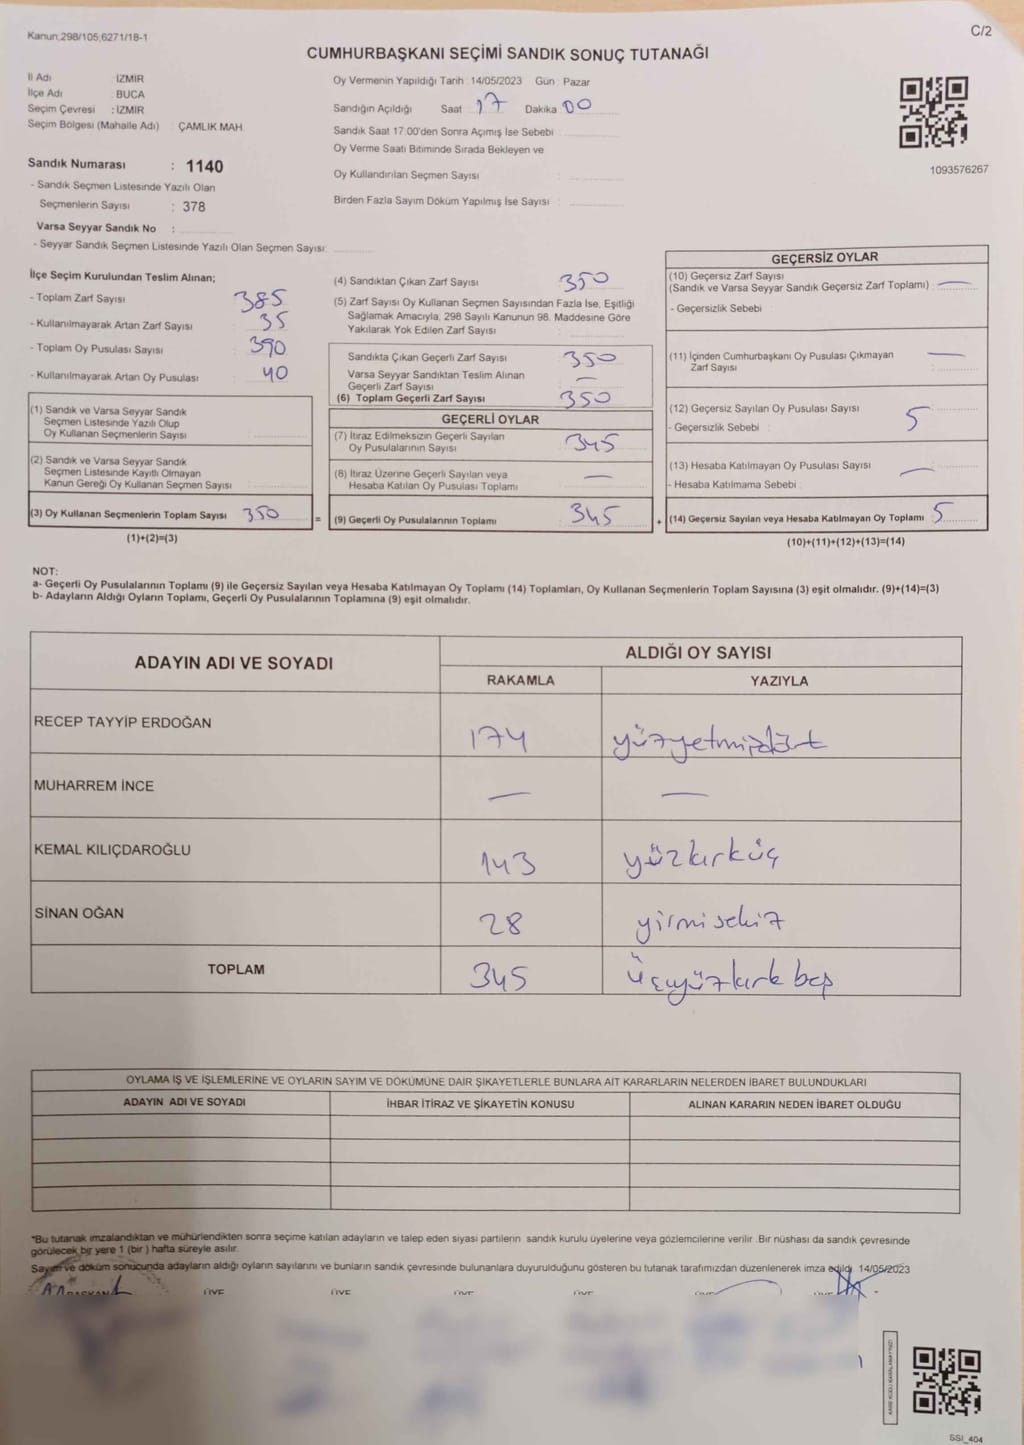 Kanun;298/105;6271/18-1
C/2
CUMHURBAŞKANI SEÇİMİ SANDIK SONUÇ TUTANAĞI
İl Adı : İZMİR
İlçe Adı : BUCA
Seçim Çevresi : İZMİR
Seçim Bölgesi (Mahalle Adı) : ÇAMLIK MAH.
Oy Vermenin Yapıldığı Tarih : 14/05/2023 Gün : Pazar
Sandığın Açıldığı Saat 17 Dakika 00
Sandık Saat 17:00'den Sonra Açımış İse Sebebi :
Oy Verme Saati Bitiminde Sırada Bekleyen ve
Oy Kullandırılan Seçmen Sayısı :
Birden Fazla Sayım Döküm Yapılmış İse Sayısı :
1093576267
Sandık Numarası : 1140
- Sandık Seçmen Listesinde Yazılı Olan
Seçmenlerin Sayısı : 378
Varsa Seyyar Sandık No :
- Seyyar Sandık Seçmen Listesinde Yazılı Olan Seçmen Sayısı:
İlçe Seçim Kurulundan Teslim Alınan;
- Toplam Zarf Sayısı : 385
- Kullanılmayarak Artan Zarf Sayısı : 35
- Toplam Oy Pusulası Sayısı : 390
- Kullanılmayarak Artan Oy Pusulası : 40
(1) Sandık ve Varsa Seyyar Sandık
Seçmen Listesinde Yazılı Olup
Oy Kullanan Seçmenlerin Sayısı :
(2) Sandık ve Varsa Seyyar Sandık
Seçmen Listesinde Kayıtlı Olmayan
Kanun Gereği Oy Kullanan Seçmen Sayısı :
(3) Oy Kullanan Seçmenlerin Toplam Sayısı : 350
(1)+(2)=(3)
(4) Sandıktan Çıkan Zarf Sayısı : 350
(5) Zarf Sayısı Oy Kullanan Seçmen Sayısından Fazla İse, Eşitliği
Sağlamak Amacıyla, 298 Sayılı Kanunun 98. Maddesine Göre
Yakılarak Yok Edilen Zarf Sayısı :
Sandıkta Çıkan Geçerli Zarf Sayısı : 350
Varsa Seyyar Sandıktan Teslim Alınan
Geçerli Zarf Sayısı : —
(6) Toplam Geçerli Zarf Sayısı : 350
GEÇERLİ OYLAR
(7) İtiraz Edilmeksizin Geçerli Sayılan
Oy Pusulalarının Sayısı : 345
(8) İtiraz Üzerine Geçerli Sayılan veya
Hesaba Katılan Oy Pusulası Toplamı : —
= (9) Geçerli Oy Pusulalarının Toplamı : 345
GEÇERSİZ OYLAR
(10) Geçersiz Zarf Sayısı
(Sandık ve Varsa Seyyar Sandık Geçersiz Zarf Toplamı) : —
- Geçersizlik Sebebi :
(11) İçinden Cumhurbaşkanı Oy Pusulası Çıkmayan
Zarf Sayısı : —
(12) Geçersiz Sayılan Oy Pusulası Sayısı : 5
- Geçersizlik Sebebi :
(13) Hesaba Katılmayan Oy Pusulası Sayısı : —
- Hesaba Katılmama Sebebi :
+ (14) Geçersiz Sayılan veya Hesaba Katılmayan Oy Toplamı : 5
(10)+(11)+(12)+(13)=(14)
NOT:
a- Geçerli Oy Pusulalarının Toplamı (9) ile Geçersiz Sayılan veya Hesaba Katılmayan Oy Toplamı (14) Toplamları, Oy Kullanan Seçmenlerin Toplam Sayısına (3) eşit olmalıdır. (9)+(14)=(3)
b- Adayların Aldığı Oyların Toplamı, Geçerli Oy Pusulalarının Toplamına (9) eşit olmalıdır.
ADAYIN ADI VE SOYADI
ALDIĞI OY SAYISI
RAKAMLA YAZIYLA
RECEP TAYYİP ERDOĞAN 174 yüzyetmişdört
MUHARREM İNCE — —
KEMAL KILIÇDAROĞLU 143 yüzkırküç
SİNAN OĞAN 28 yirmisekiz
TOPLAM 345 Üçyüzkırk beş
OYLAMA İŞ VE İŞLEMLERİNE VE OYLARIN SAYIM VE DÖKÜMÜNE DAİR ŞİKAYETLERLE BUNLARA AİT KARARLARIN NELERDEN İBARET BULUNDUKLARI
ADAYIN ADI VE SOYADI İHBAR İTİRAZ VE ŞİKAYETİN KONUSU ALINAN KARARIN NEDEN İBARET OLDUĞU
*Bu tutanak imzalandıktan ve mühürlendikten sonra seçime katılan adayların ve talep eden siyasi partilerin sandık kurulu üyelerine veya gözlemcilerine verilir. Bir nüshası da sandık çevresinde
görülecek bir yere 1 (bir ) hafta süreyle asılır.
Sayım ve döküm sonucunda adayların aldığı oyların sayılarını ve bunların sandık çevresinde bulunanlara duyurulduğunu gösteren bu tutanak tarafımızdan düzenlenerek imza edildi. 14/05/2023
BAŞKAN ÜYE ÜYE ÜYE ÜYE
SSI_404